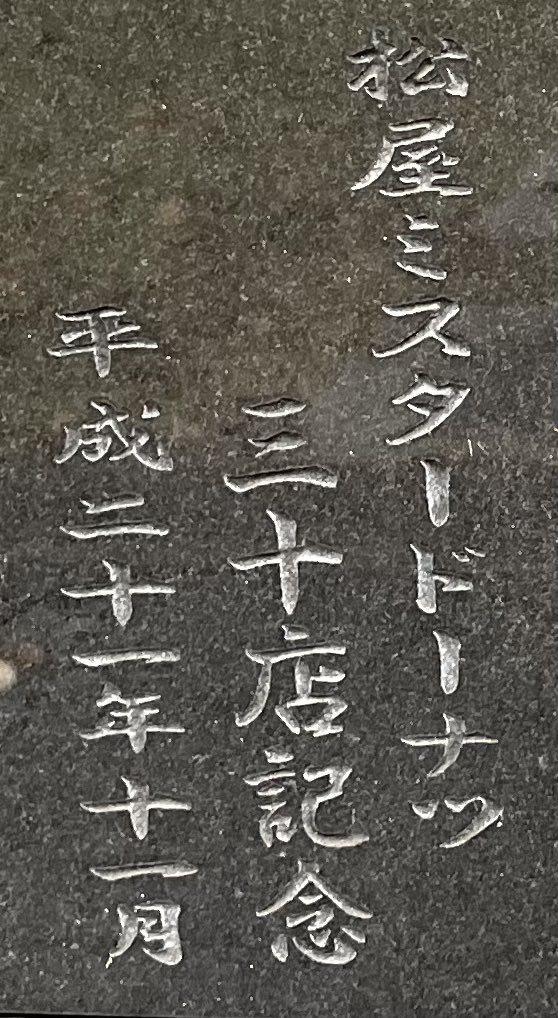 松屋ミスタードーナツ
三十店記念
平成二十一年十一月